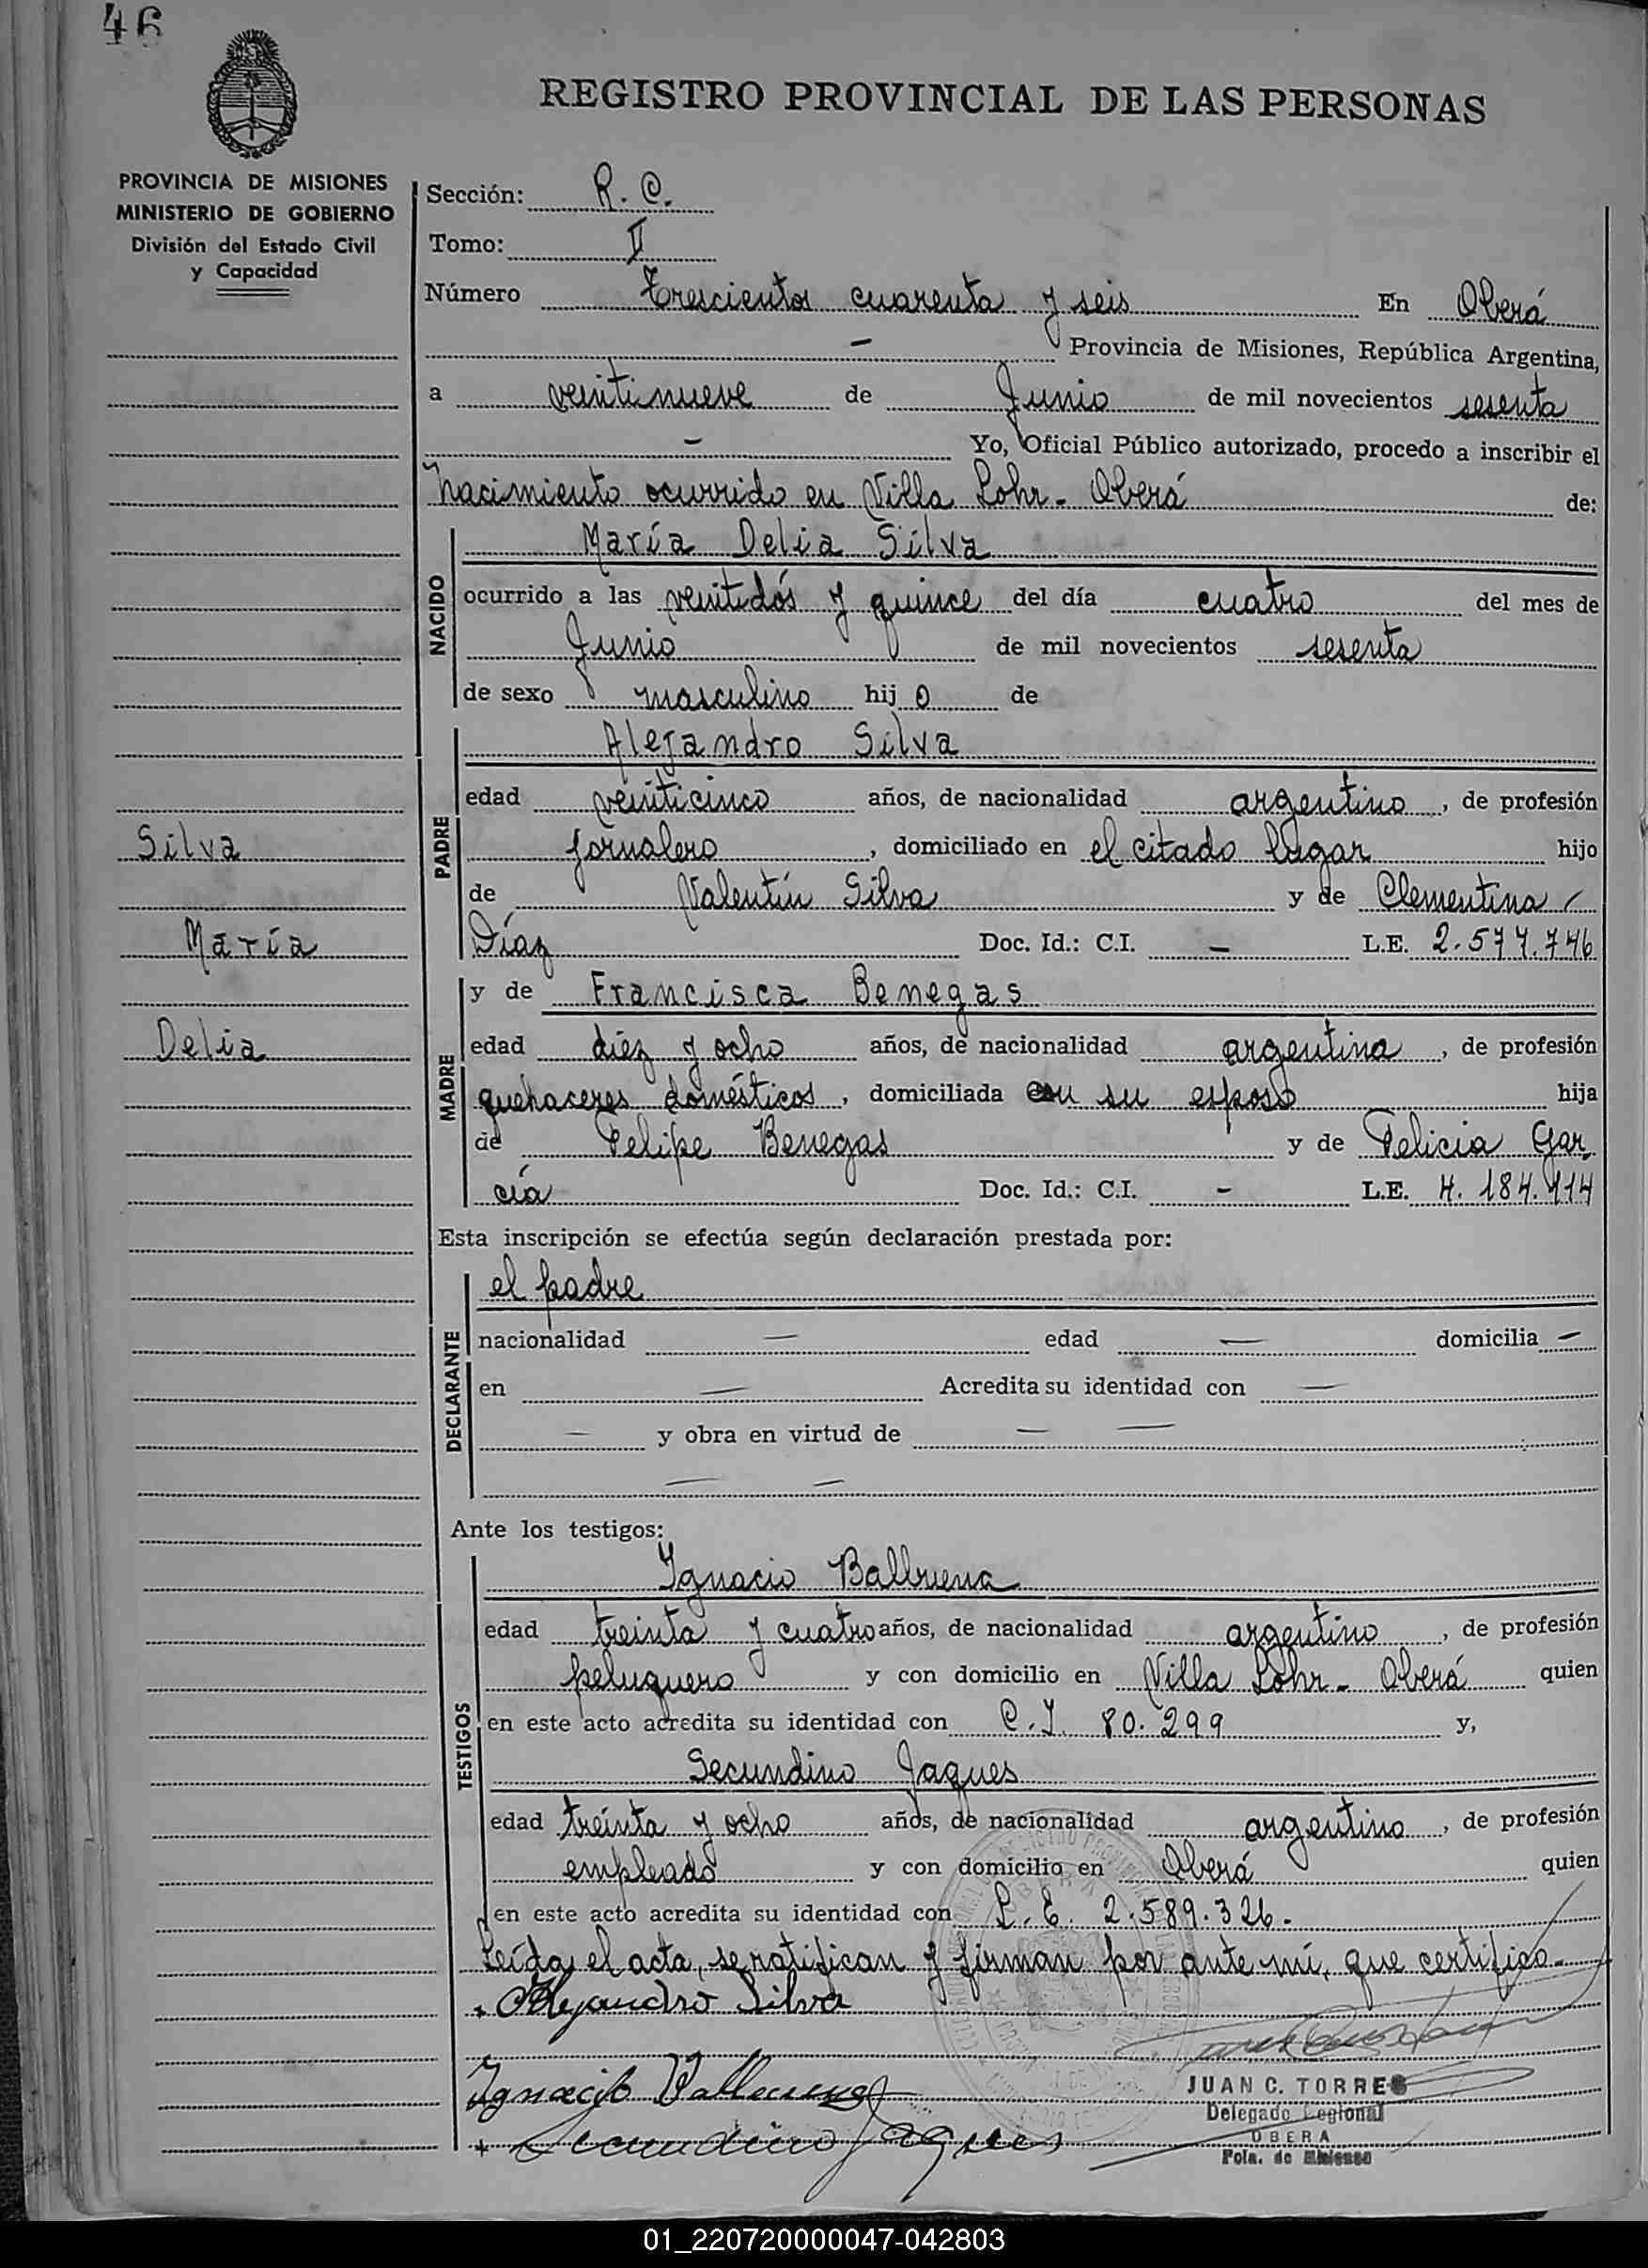 46
REGISTRO PROVINCIAL DE LAS PERSONAS
PROVINCIA DE MISIONES
MINISTERIO DE GOBIERNO
División del Estado Civil
y Capacidad
Sección: R. C.
Tomo: II
Número Trescientos cuarenta y seis En Oberá
— Provincia de Misiones, República Argentina,
a veintinueve de Junio de mil novecientos sesenta
— Yo, Oficial Público autorizado, procedo a inscribir el
nacimiento ocurrido en Villa Lohr - Oberá de:
NACIDO
María Delia Silva
ocurrido a las veintidós y quince del día cuatro del mes de
Junio de mil novecientos sesenta
de sexo masculino hijo de
PADRE
Alejandro Silva
edad veinticinco años, de nacionalidad argentino, de profesión
Silva
jornalero, domiciliado en el citado lugar hijo
de Valentín Silva y de Clementina
María
Díaz Doc. Id.: C.I. — L.E. 2.577.746
MADRE
y de Francisca Benegas
Delia
edad diez y ocho años, de nacionalidad argentina, de profesión
quehaceres domésticos, domiciliada con su esposo hija
de Felipe Benegas y de Felicia Gar
cía Doc. Id.: C.I. — L.E. 4.184.414
Esta inscripción se efectúa según declaración prestada por:
DECLARANTE
el padre
nacionalidad — edad — domicilia —
en — Acredita su identidad con —
— y obra en virtud de — —
— —
Ante los testigos:
TESTIGOS
Ignacio Balbuena
edad treinta y cuatro años, de nacionalidad argentino, de profesión
peluquero y con domicilio en Villa Lohr - Oberá quien
en este acto acredita su identidad con C. I. 80.299 y,
Secundino Jaques
edad treinta y ocho años, de nacionalidad argentino, de profesión
empleado y con domicilio en Oberá quien
en este acto acredita su identidad con L. E. 2.589.326.
Leída el acta, se ratifican y firman por ante mí, que certifico.
Alejandro Silva
Ignacio Balbuena
JUAN C. TORRES
Delegado Regional
OBERA
Pcia. de Misiones
Secundino Jaques
01_220720000047-042803